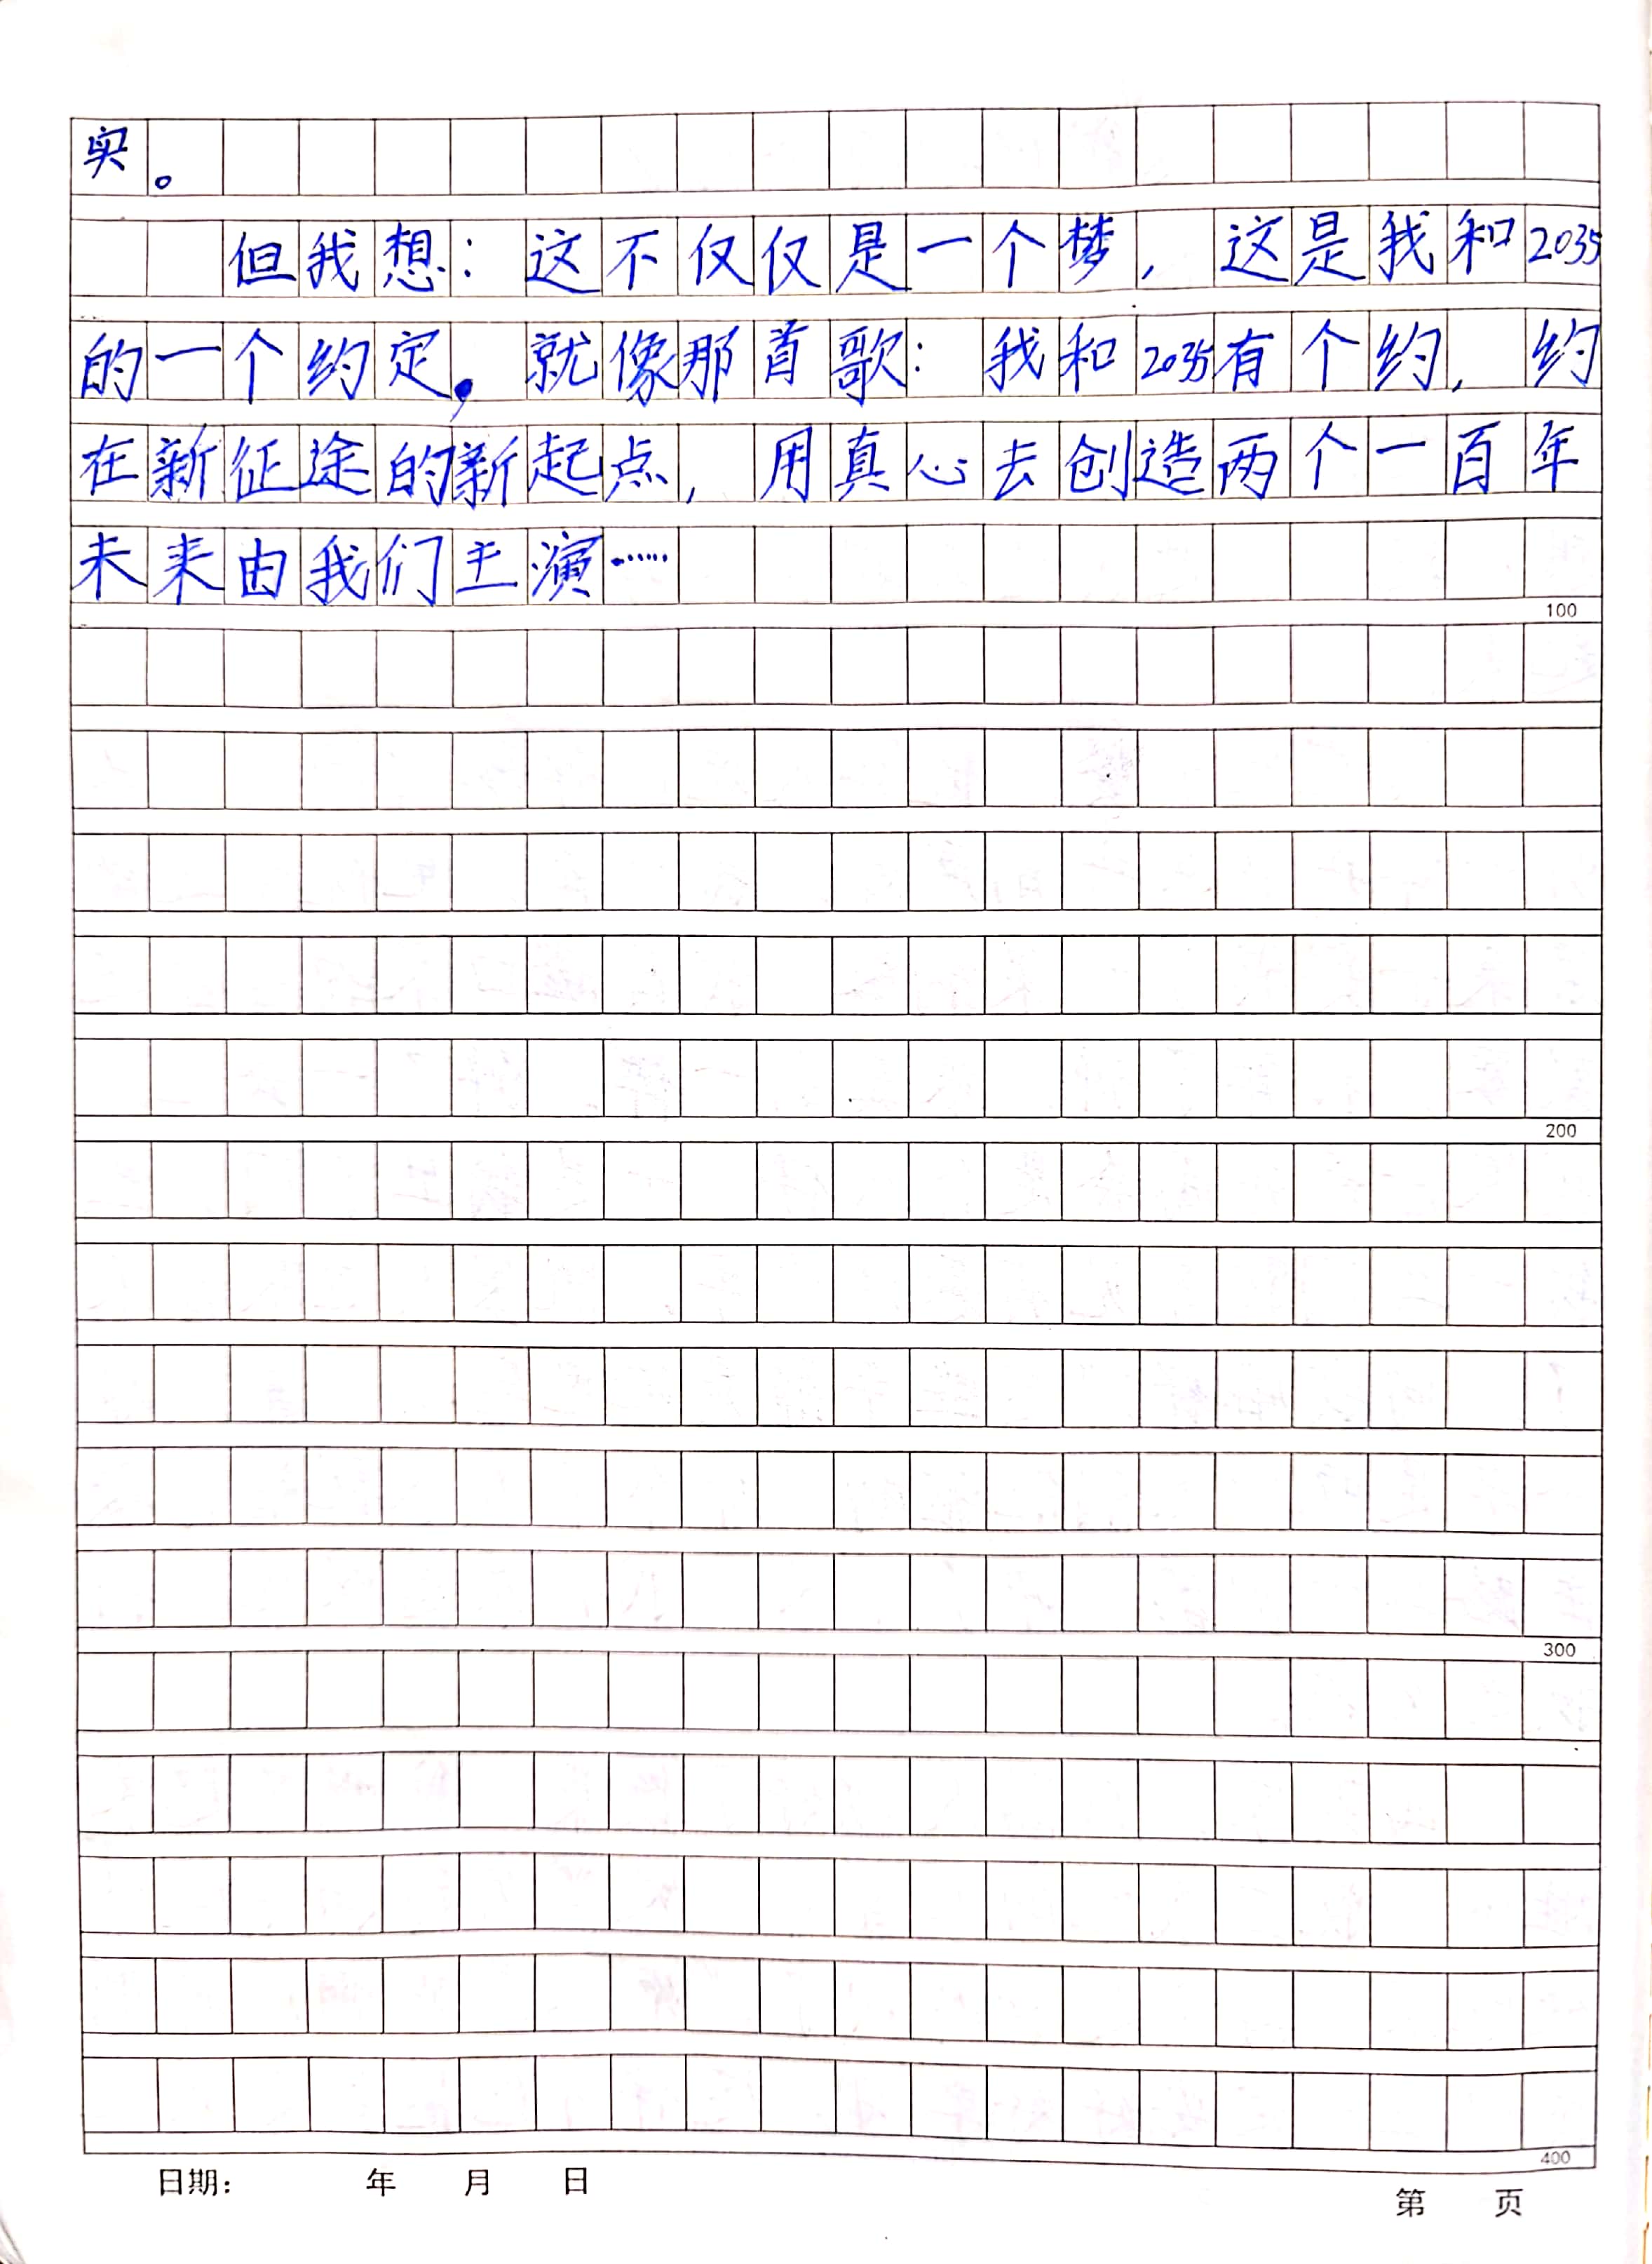 实。
但我想：这不仅仅是一个梦，这是我和2035
的一个约定，就像那首歌：我和2035有个约，约
在新征途的新起点，用真心去创造两个一百年
未来由我们主演……
100
200
300
400
日期： 年 月 日
第 页